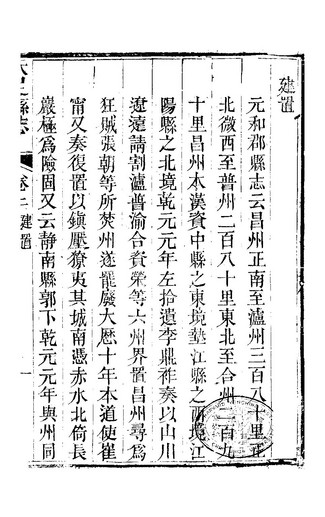 建置
元和郡縣志云昌州正南至瀘州三百八十里正
北微西至普州二百八十里東北至合州二百九
十里昌州本漢資中縣之東境墊江縣之西境江
陽縣之北境乾元元年左拾遺李鼎祚奏以山川
遼遠請割瀘普渝合資榮等六州界置昌州尋為
狂賊張朝等所焚州遂罷廢大歷十年本道使崔
甯又奏復置以鎮壓獠夷其城南憑赤水北倚長
巖極為險固又云靜南縣郭下乾元元年與州同
大足縣志
卷二 建置
一